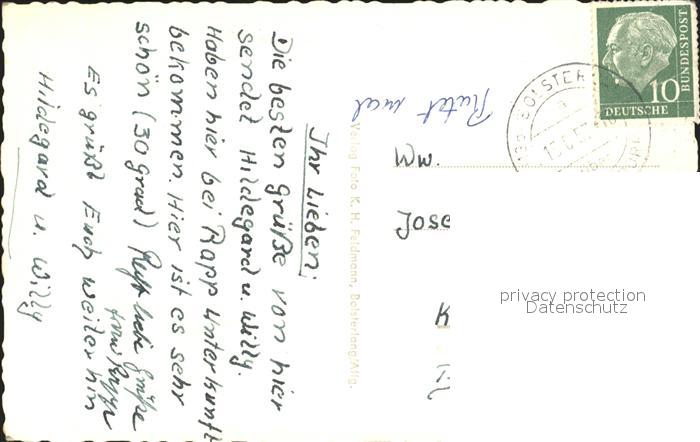 Ihr Lieben;
Die besten Grüße von hier
sendet Hildegard u. Willy.
Haben hier bei Rapp Unterkunft
bekommen. Hier ist es sehr
schön (30 grad)
Es grüßt Euch weiterhin
Hildegard u. Willy
Verlag Foto K. H. Feldmann, Bolsterlang/Allg.
10
DEUTSCHE
BUNDESPOST
BOLSTER
Ww.
Jose
K
privacy protection
Datenschutz